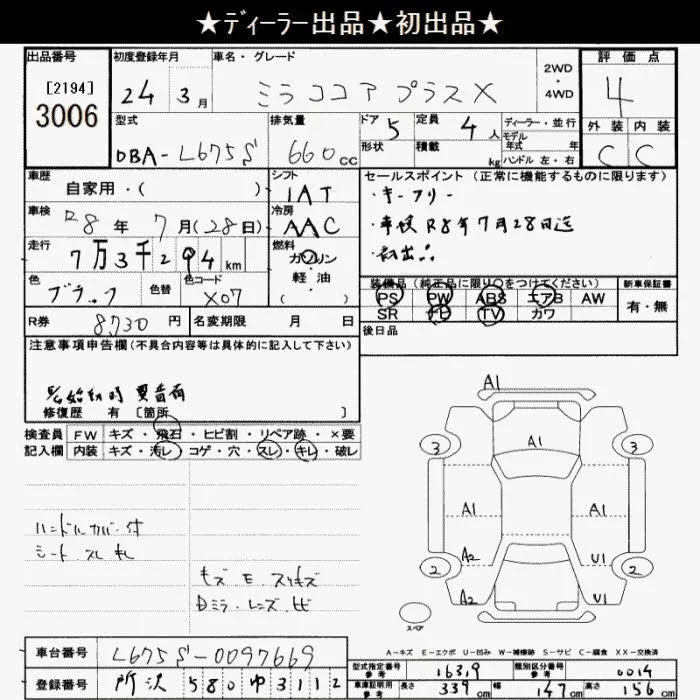 ★ディーラー出品★初出品★
出品番号 初度登録年月 車名・グレード 2WD・4WD 評価点
[2194]
3006
24年 3月 ミラココア プラスX 4
型式 排気量 ドア 定員 ディーラー・並行 外装 内装
DBA-L675S 660cc 5 4人 モデル年式 年 C C
形状 積載 kg ハンドル 左・右
車歴 シフト セールスポイント(正常に機能するものに限ります)
自家用・( ) IAT ・キーフリー
車検 R8年 7月(28日) 冷房 AAC ・車検R8年7月28日迄
走行 7万3千294km 燃料 ガソリン・軽油 ( ) ・初出品
色 ブラック 色替 色コード X07 装備品(純正品に限り○をつけてください) 新車保証書
PS PW ABS エアB AW 有・無
SR ナビ TV カワ
R券 8730円 名変期限 月 日 後日品
注意事項申告欄(不具合内容等は具体的に記入して下さい)
始動時 異音有
修復歴 有 [箇所 ]
検査員 FW キズ・飛石・ヒビ割・リペア跡・×要
記入欄 内装 キズ・汚レ・コゲ・穴・スレ・キレ・破レ
ハンドルカバー付
シート スレ キレ
キズ E スリキズ
Dミラーレンズ ヒビ
A1
3 A1 3
A1 A1
A2 U1
2 2
A2 U1
スペア
A-キズ E-エクボ U-凹み W-補修跡 S-サビ C-腐食 XX-交換済
車台番号 L675S-0097669
型式指定番号 参考 16319 類別区分番号 参考 0014
登録番号 所沢 580 ゆ 3112
車庫証明用 参考 長さ 339cm 幅 147cm 高さ 156cm